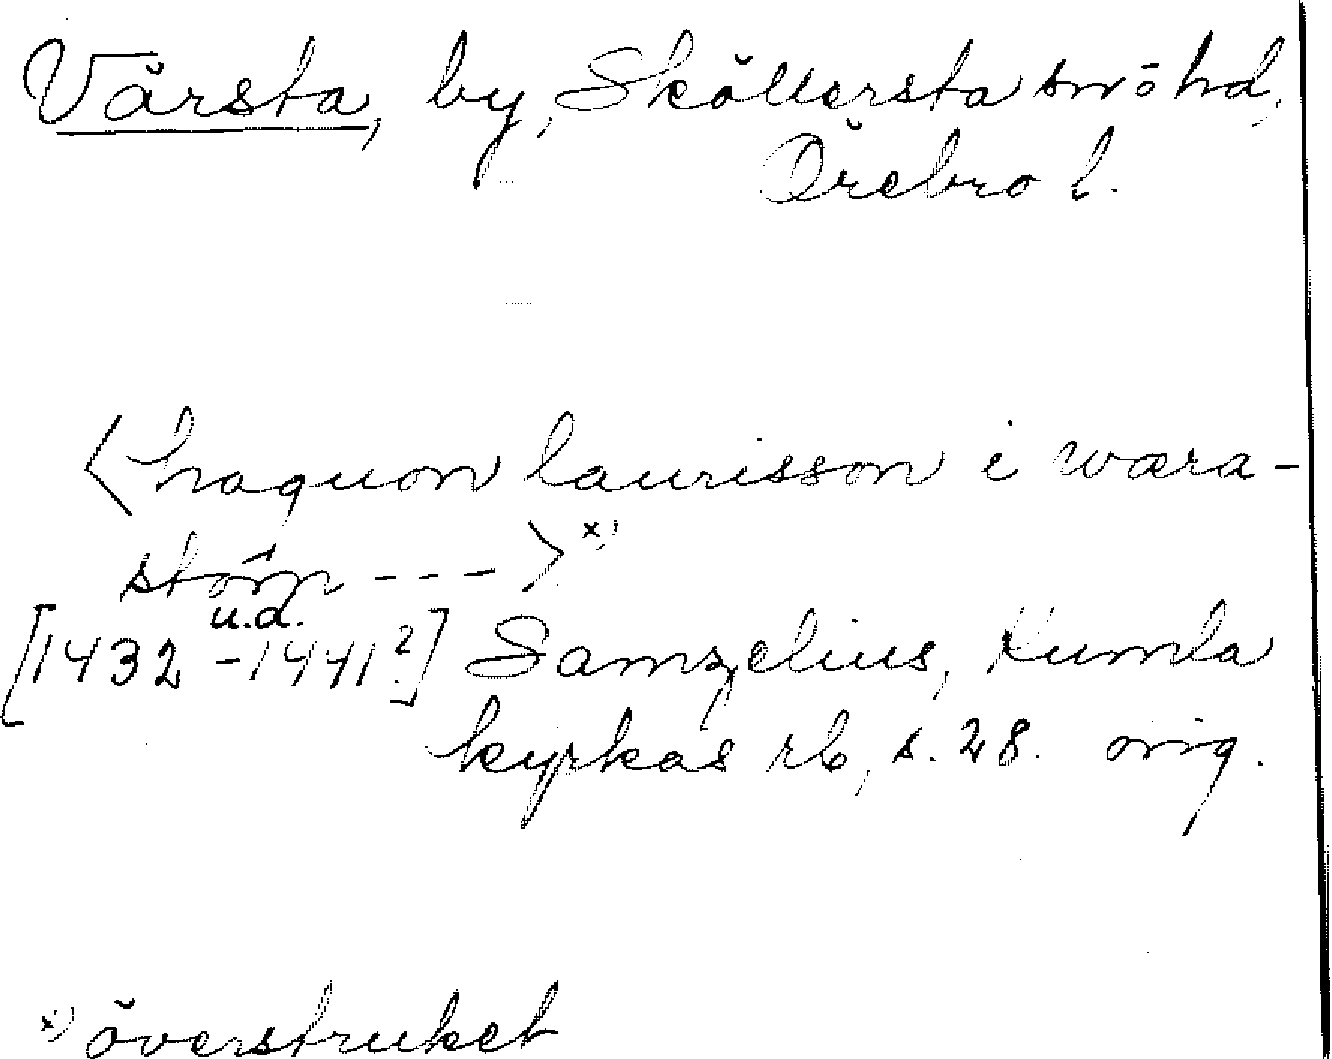 Vårsta, by, Sköllersta sn o hd,
Örebro l.
<haquon laurisson i wæra-
stöm --->x)
u.d.
[1432 -1441?] Samzelius, Kumla
kyrkas rb, s. 28. orig.
x) överstruket